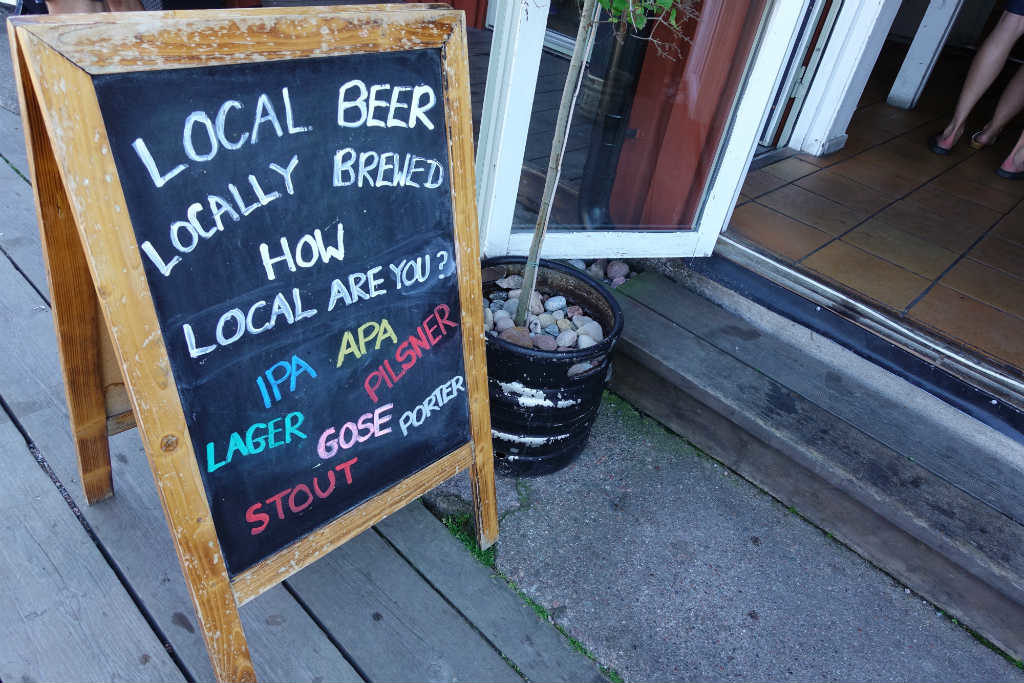 LOCAL BEER
LOCALLY BREWED
HOW
LOCAL ARE YOU?
IPA APA PILSNER
LAGER GOSE PORTER
STOUT